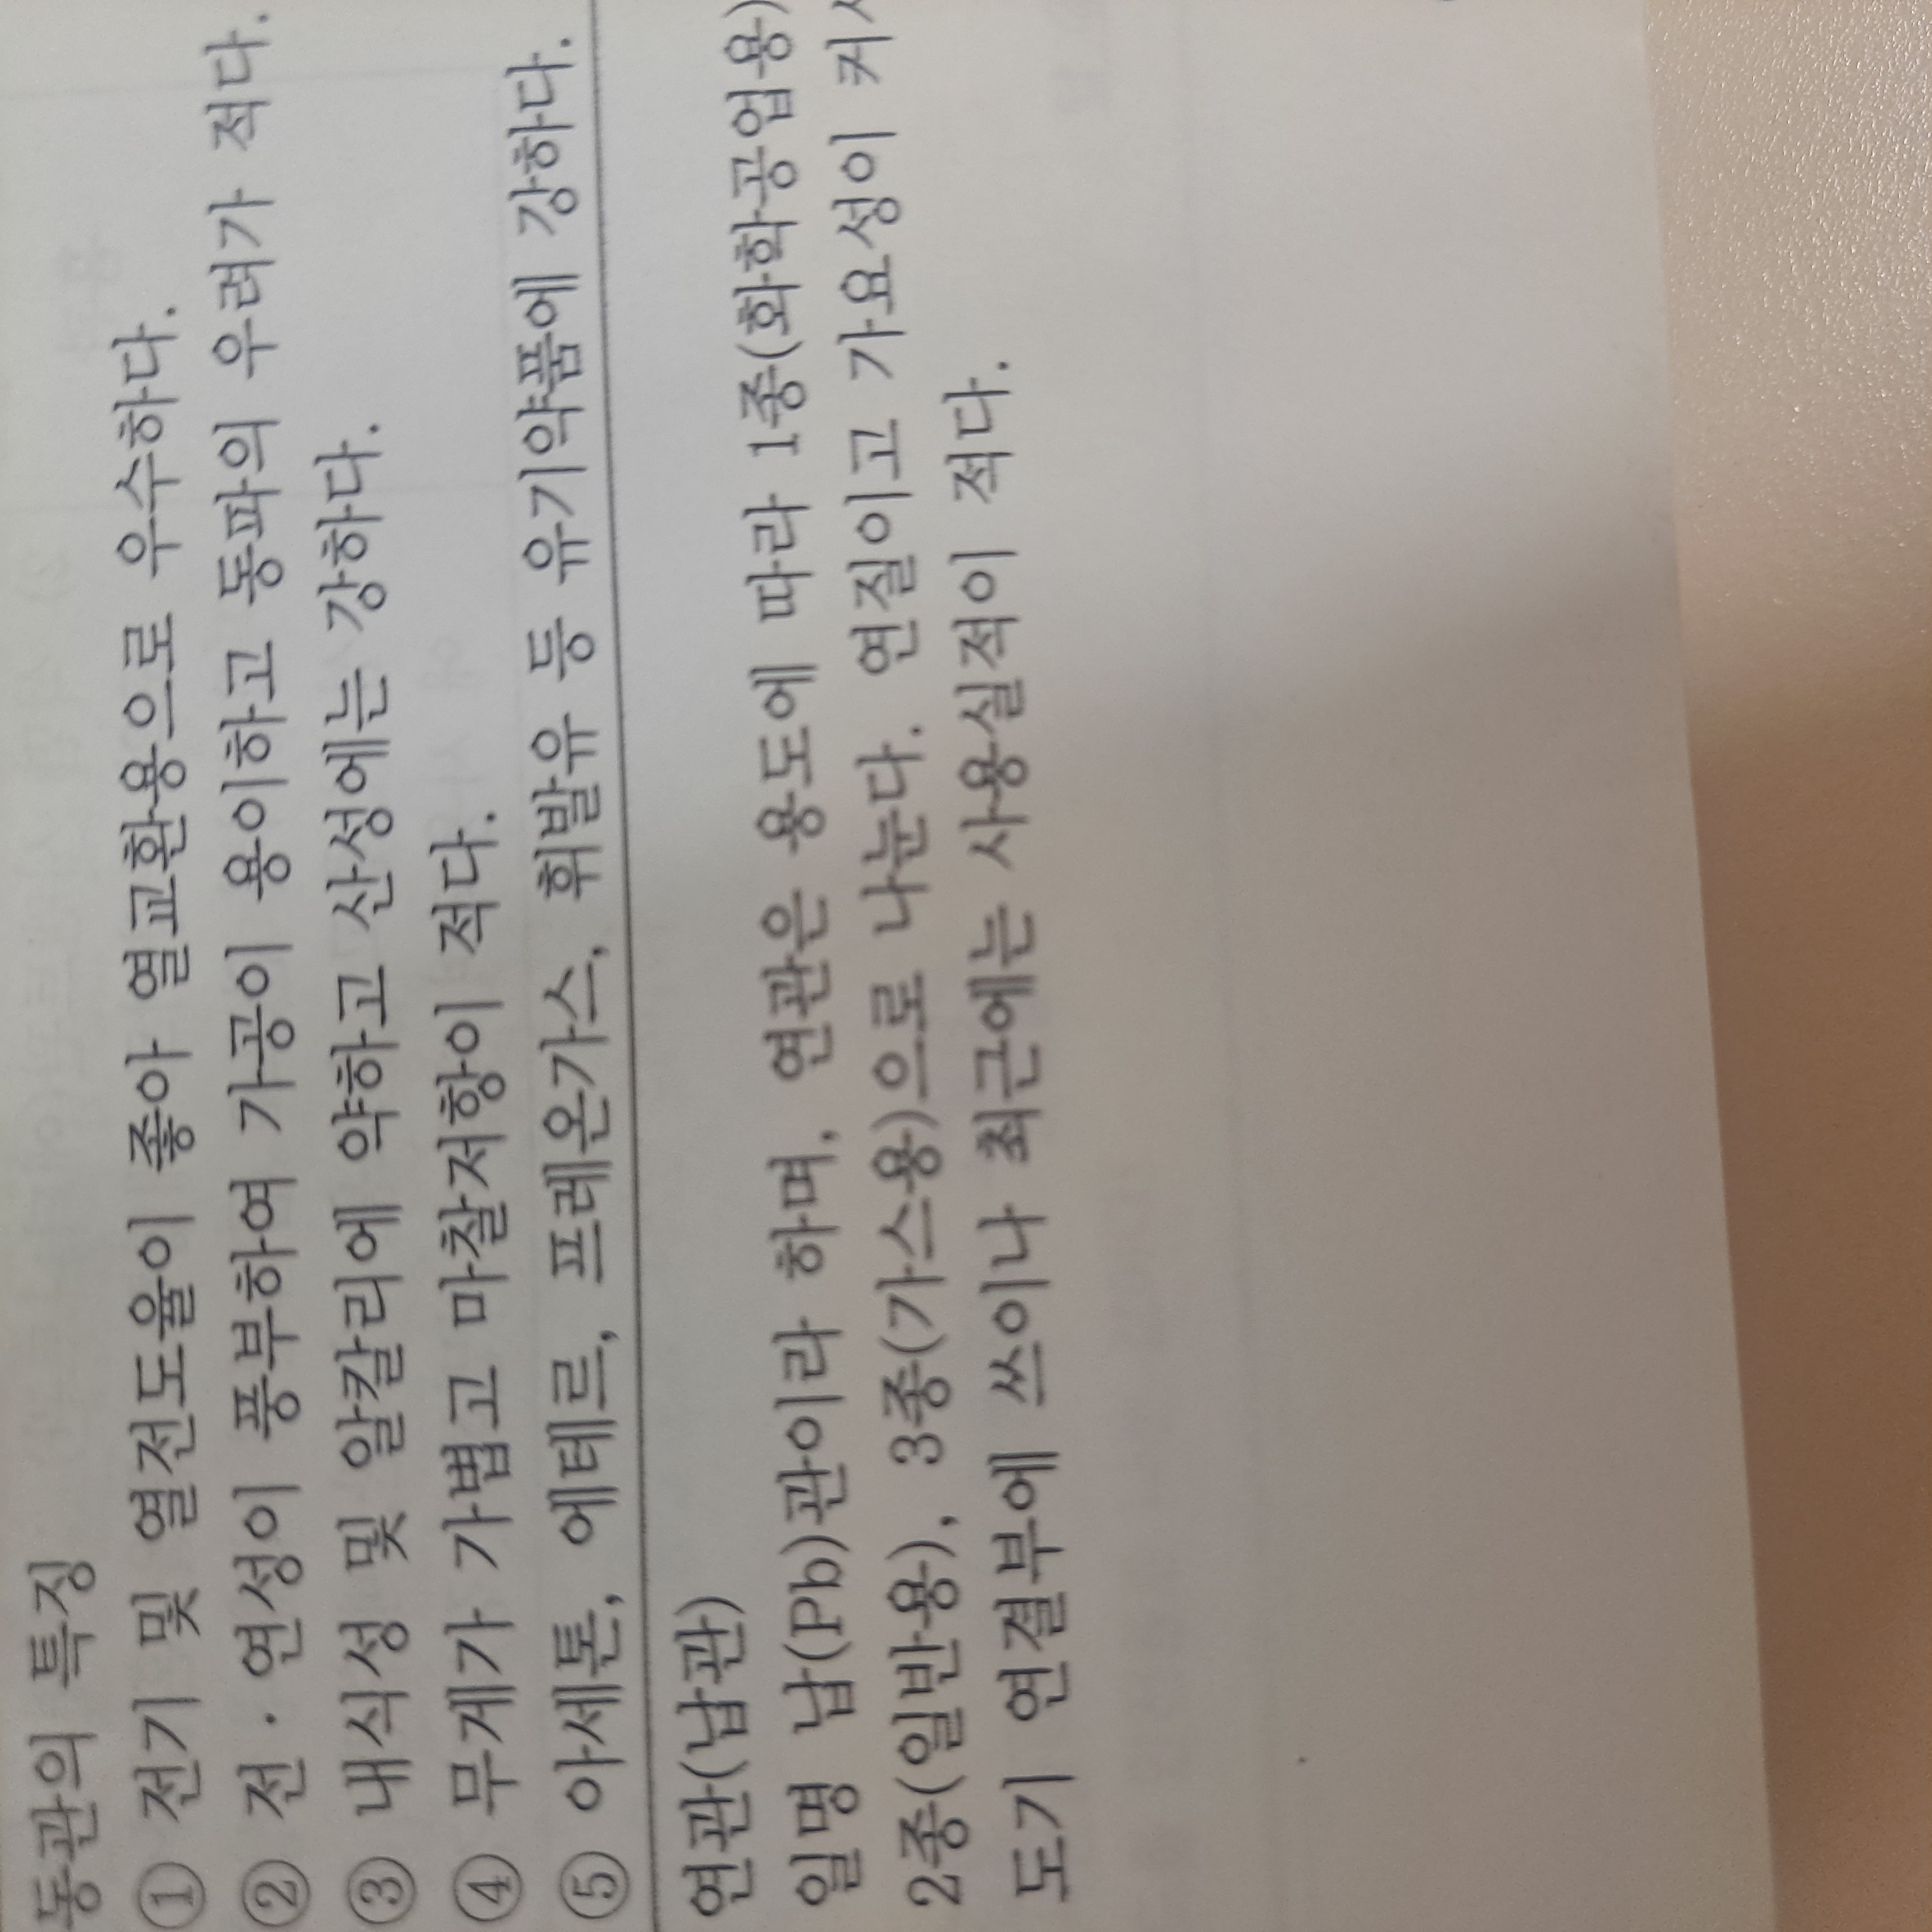 동관의 특징
① 전기 및 열전도율이 좋아 열교환용으로 우수하다.
② 전·연성이 풍부하여 가공이 용이하고 동파의 우려가 적다.
③ 내식성 및 알칼리에 약하고 산성에는 강하다.
④ 무게가 가볍고 마찰저항이 적다.
⑤ 아세톤, 에테르, 프레온가스, 휘발유 등 유기약품에 강하다.
연관(납관)
일명 납(Pb)관이라 하며, 연관은 용도에 따라 1종(화학공업용)
2종(일반용), 3종(가스용)으로 나눈다. 연질이고 가요성이 커서
도기 연결부에 쓰이나 최근에는 사용실적이 적다.